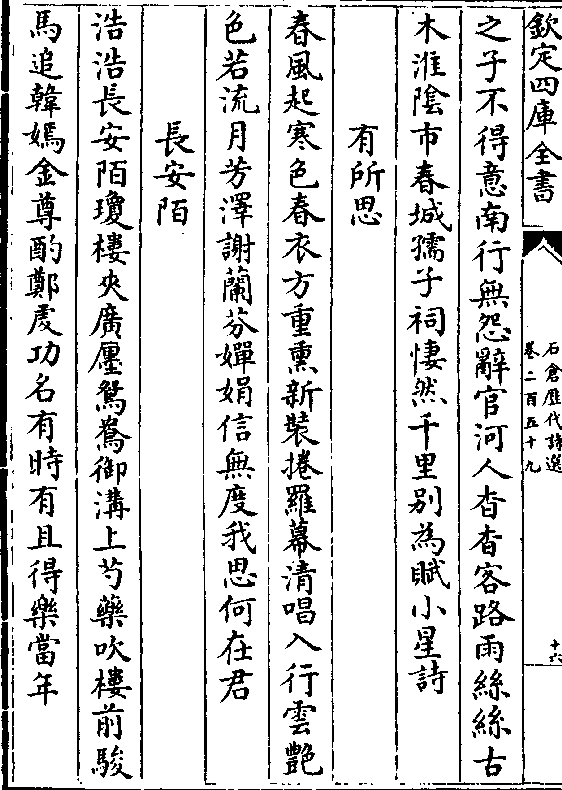 欽定四庫全書
石倉歷代詩選
卷二百五十九
十六
之子不得意南行無怨辭官河人杳杳客路雨絲絲古
木淮陰市春城孺子祠悽然千里別為賦小星詩
有所思
春風起寒色春衣方重熏新裝捲羅幕清唱入行雲艷
色若流月芳澤謝蘭芬嬋娟信無度我思何在君
長安陌
浩浩長安陌瓊樓夾廣廛鴛鴦御溝上芍藥吹樓前駿
馬追韓嫣金尊酌鄭虔功名有時有且得樂當年